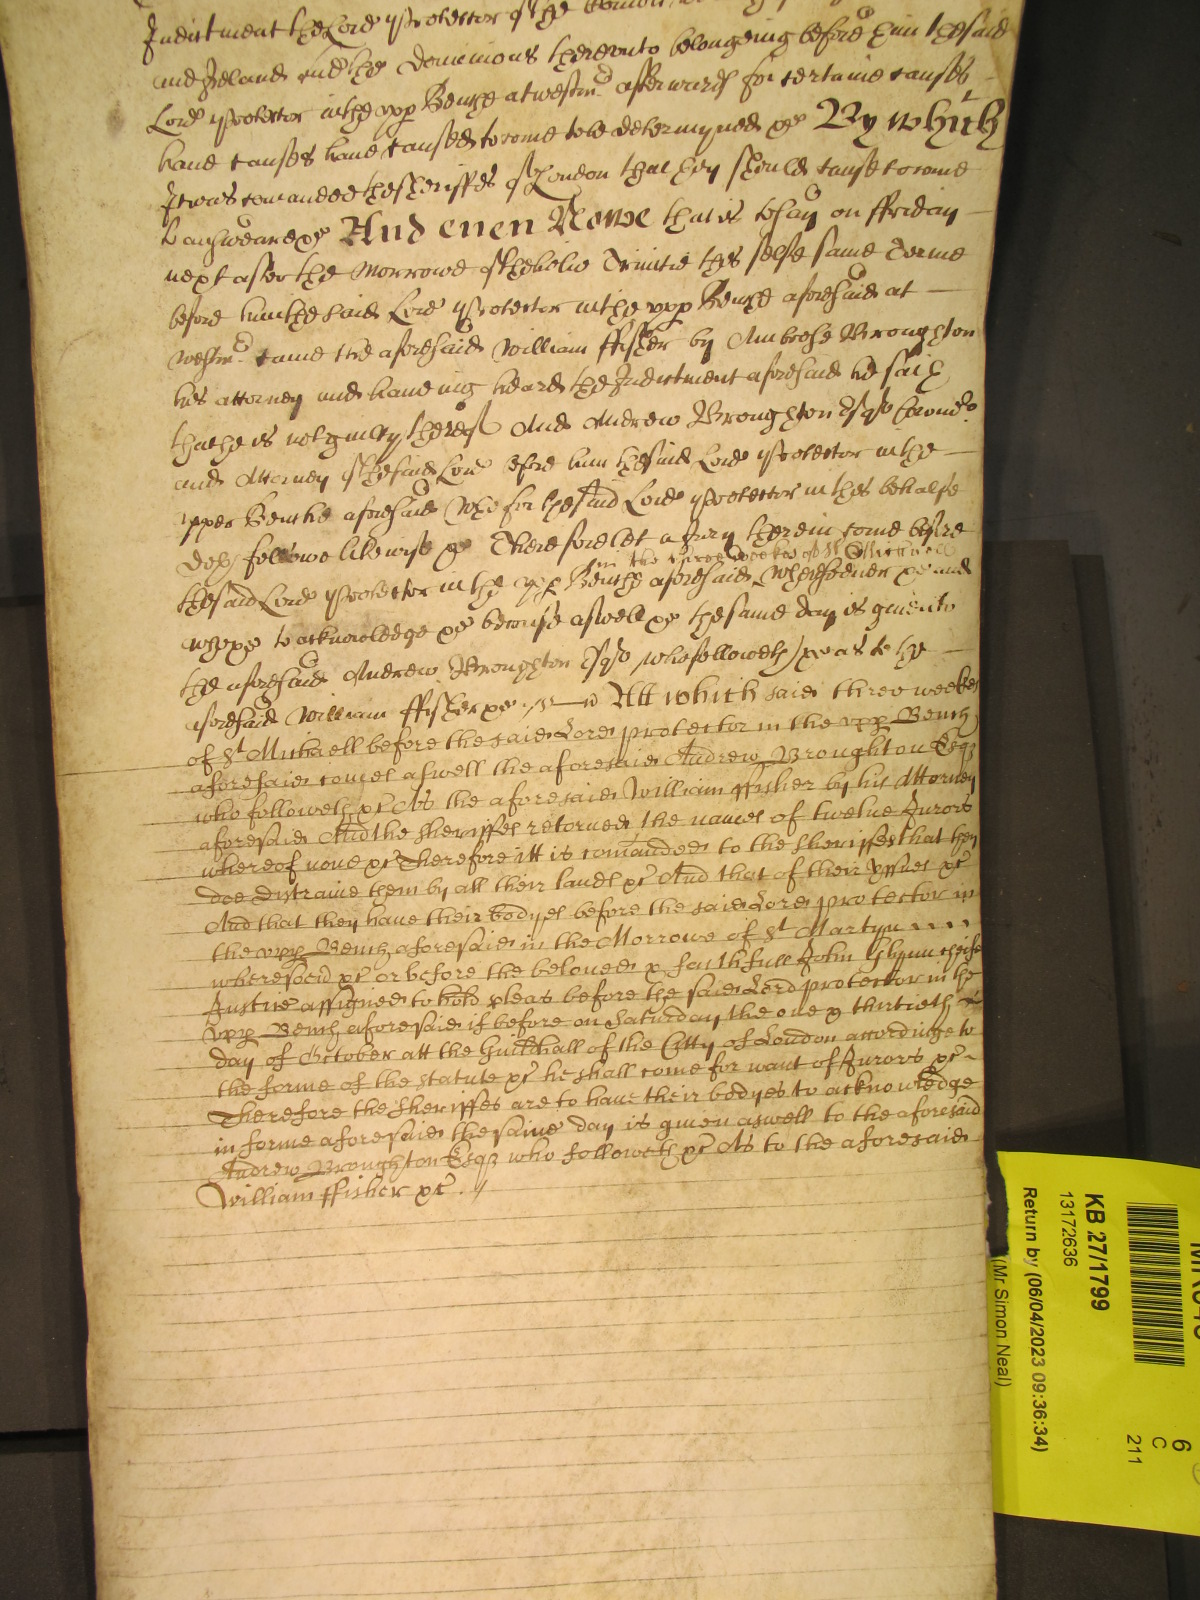 Indictment the Lord Protector of the Comon
and Ireland and the dominions therevnto belongeing before him the said
Lord Protector in the vpp Bench at westmr afterwards for certaine causes
haue causes haue caused to come to be determyned &c By which
It was comanded the Sheriffes of London that they should cause to come
to answeare &c And euen Nowe that is to say on ffriday
next after the Morrowe of the holie Trinitie this selfe same Terme
before him the said Lord Protector in the vpp Bench aforesaid at
Westmr came the aforesaid William ffisher by Ambrose Broughton
his attorney and haueing heard the Indictment aforesaid he saith
that he is not guilty thereof And Andrew Broughton Esqr Coroner
and Attorney of the said Lord before him the said Lord Protector in the
vpper Benche aforesaid Who for the said Lord Protector in this behalfe
doth followe likewise &c Therefore let a Jury therein come before
in the three weeks of St Michaell
the said Lord Protector in the vpp Bench aforesaid Wheresoeuer &c and
who &c to acknowledge &c because aswell &c the same day is giuen to
the aforesaid Andrew Broughton Esqr who followeth &c as to the
aforesaid William ffisher &c Att which said three weekes
of St Michaell before the said Lord protector in the vpp Bench
aforesaid comes aswell the aforesaid Andrew Broughton Esqr
who followeth &c As the aforesaid William ffisher by his Attorney
aforesaid And the Sheriffes retorned the names of twelue Jurors
whereof none &c Therefore itt is comanded to the Sheriffes that they
doe distraine them by all their lands &c And that of their yssues &c
And that they haue their bodyes before the said Lord protector in
the vpp Bench aforesaid in the Morrowe of St Martyn
wheresoeu &c or before the beloued & faithfull John Glynn cheife
Justice assigned to hold pleas before the said Lord protector in the
vpp Bench aforesaid if before on Saturday the one & thirtieth
day of October att the Guildhall of the Citty of London accordinge to
the forme of the Statute &c he shall come for want of Jurors &c
Therefore the Sheriffes are to haue their bodyes to acknowledge
in forme aforesaid the same day is giuen aswell to the aforesaid
Andrew Broughton Esqr who followeth &c As to the aforesaid
William ffisher &c
KB 27/1799
13172636
Return by (06/04/2023 09:36:34)
(Mr Simon Neal)
6
C
211